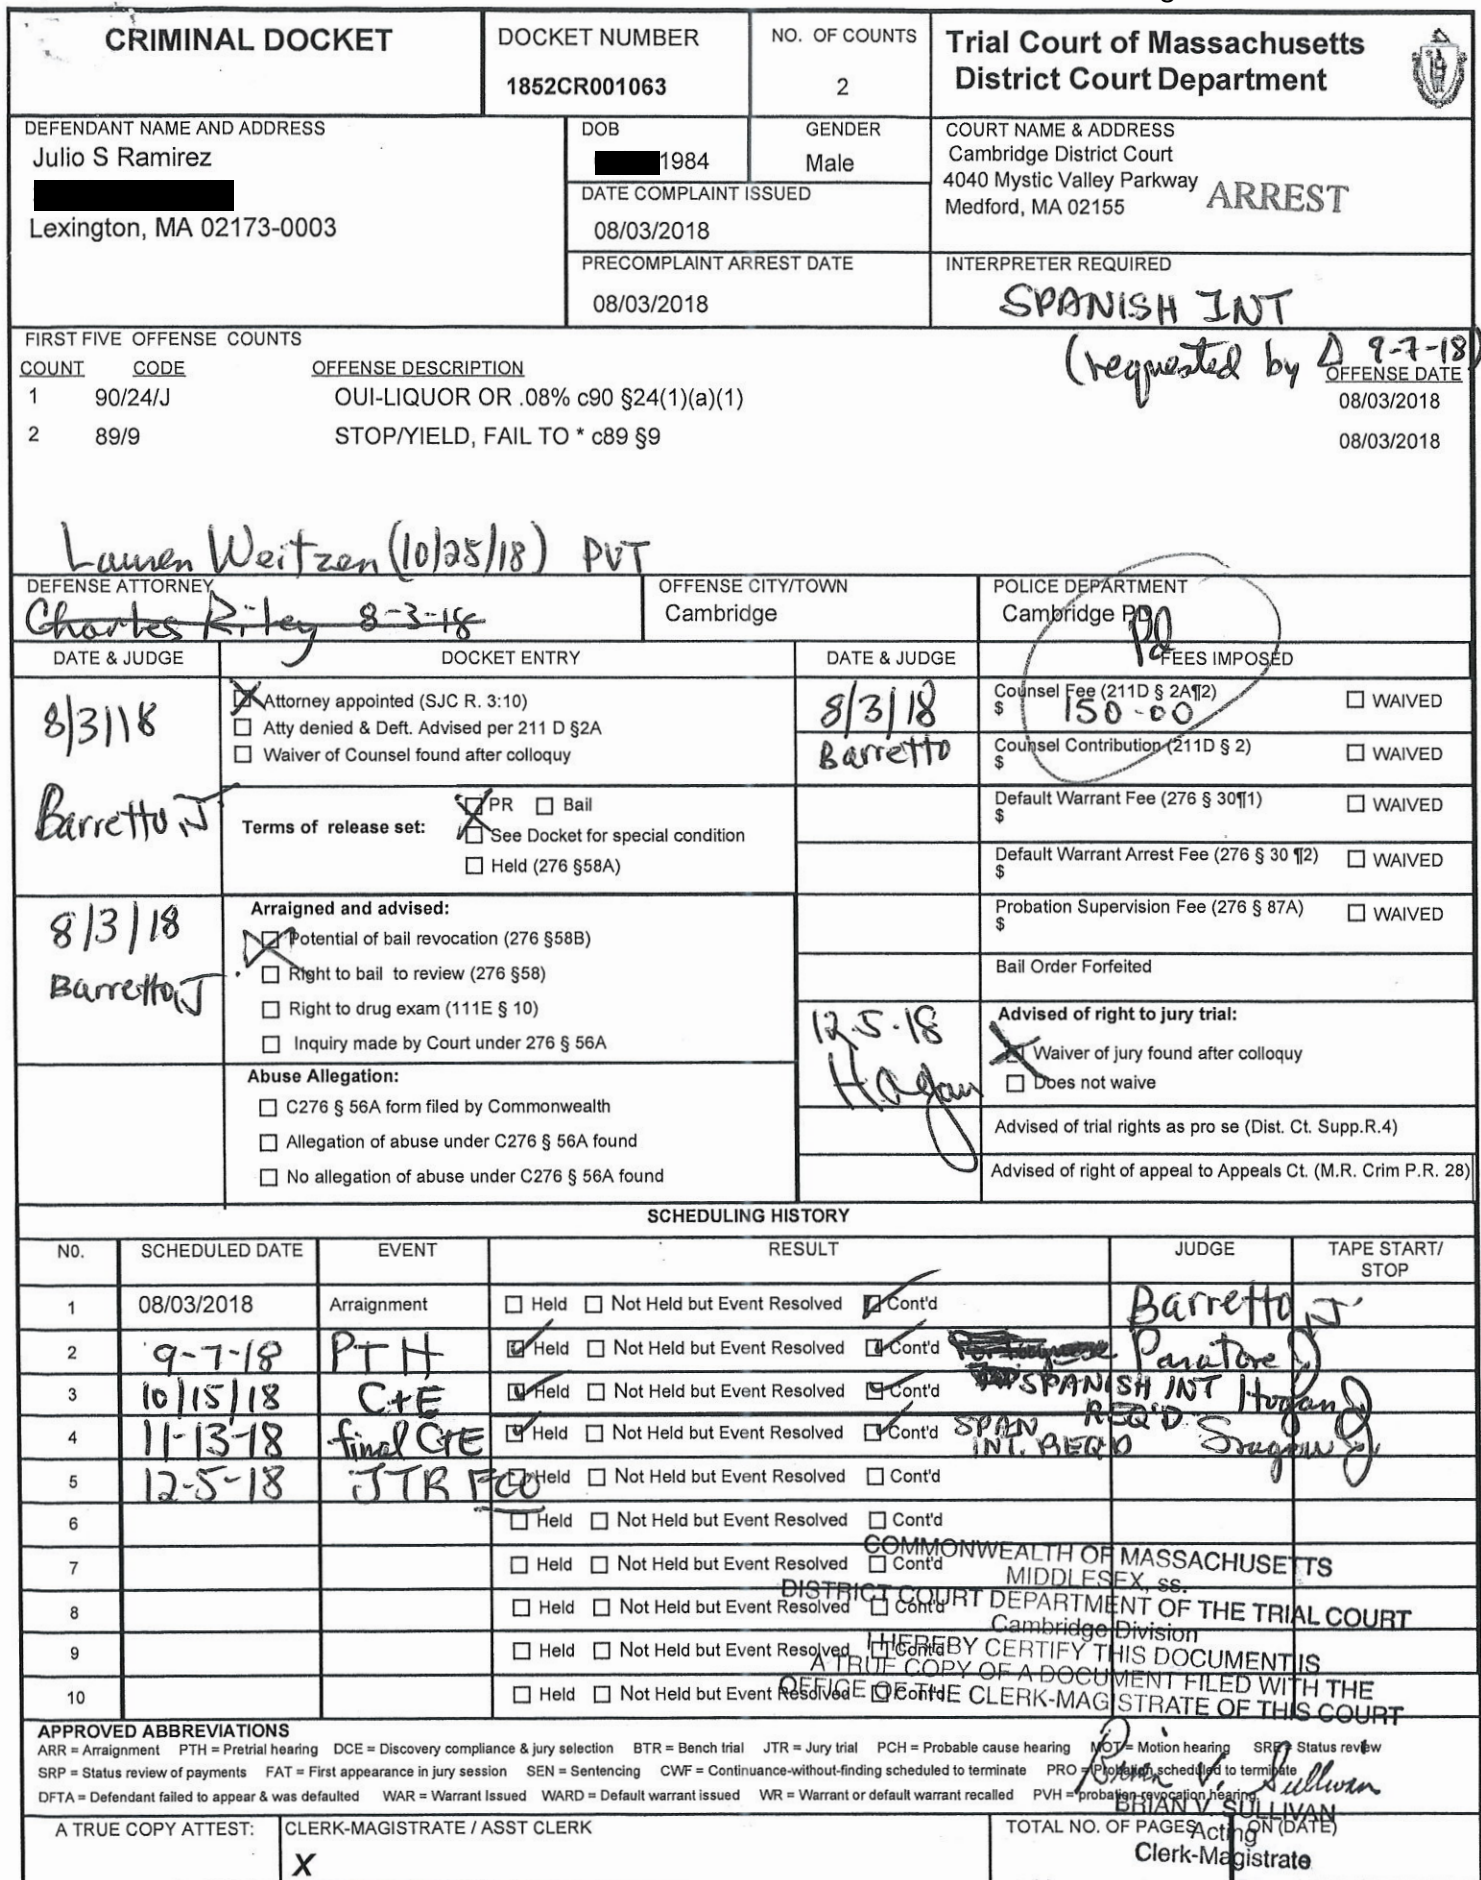 CRIMINAL DOCKET
DOCKET NUMBER
1852CR001063
NO. OF COUNTS
2
Trial Court of Massachusetts
District Court Department
DEFENDANT NAME AND ADDRESS
Julio S Ramirez
Lexington, MA 02173-0003
DOB
1984
GENDER
Male
DATE COMPLAINT ISSUED
08/03/2018
PRECOMPLAINT ARREST DATE
08/03/2018
COURT NAME & ADDRESS
Cambridge District Court
4040 Mystic Valley Parkway
Medford, MA 02155
ARREST
INTERPRETER REQUIRED
SPANISH INT
(requested by Δ 9-7-18)
FIRST FIVE OFFENSE COUNTS
COUNT CODE OFFENSE DESCRIPTION OFFENSE DATE
1 90/24/J OUI-LIQUOR OR .08% c90 §24(1)(a)(1) 08/03/2018
2 89/9 STOP/YIELD, FAIL TO * c89 §9 08/03/2018
Lauren Weitzen (10/25/18) PVT
DEFENSE ATTORNEY
Charles Riley 8-3-18
OFFENSE CITY/TOWN
Cambridge
POLICE DEPARTMENT
Cambridge PD
Pd
DATE & JUDGE DOCKET ENTRY DATE & JUDGE FEES IMPOSED
8/3/18
Barretto, J
Attorney appointed (SJC R. 3:10)
Atty denied & Deft. Advised per 211 D §2A
Waiver of Counsel found after colloquy
Terms of release set:
PR Bail
See Docket for special condition
Held (276 §58A)
8/3/18
Barretto, J
Arraigned and advised:
Potential of bail revocation (276 §58B)
Right to bail to review (276 §58)
Right to drug exam (111E § 10)
Inquiry made by Court under 276 § 56A
Abuse Allegation:
C276 § 56A form filed by Commonwealth
Allegation of abuse under C276 § 56A found
No allegation of abuse under C276 § 56A found
8/3/18
Barretto
Counsel Fee (211D § 2A¶2)
$ 150.00
WAIVED
Counsel Contribution (211D § 2)
$
WAIVED
Default Warrant Fee (276 § 30¶1)
$
WAIVED
Default Warrant Arrest Fee (276 § 30 ¶2)
$
WAIVED
Probation Supervision Fee (276 § 87A)
$
WAIVED
Bail Order Forfeited
12-5-18
Hogan
Advised of right to jury trial:
Waiver of jury found after colloquy
Does not waive
Advised of trial rights as pro se (Dist. Ct. Supp.R.4)
Advised of right of appeal to Appeals Ct. (M.R. Crim P.R. 28)
SCHEDULING HISTORY
N0. SCHEDULED DATE EVENT RESULT JUDGE TAPE START/
STOP
1 08/03/2018 Arraignment Held Not Held but Event Resolved Cont'd Barretto, J
2 9-7-18 PTH Held Not Held but Event Resolved Cont'd
3 10/15/18 C+E Held Not Held but Event Resolved Cont'd SPANISH INT REQ'D Hogan J
4 11-13-18 final C+E Held Not Held but Event Resolved Cont'd SPAN INT. REQD
5 12-5-18 JTR FCO Held Not Held but Event Resolved Cont'd
6 Held Not Held but Event Resolved Cont'd
7 Held Not Held but Event Resolved Cont'd
8 Held Not Held but Event Resolved Cont'd
9 Held Not Held but Event Resolved Cont'd
10 Held Not Held but Event Resolved Cont'd
COMMONWEALTH OF MASSACHUSETTS
MIDDLESEX, ss.
DISTRICT COURT DEPARTMENT OF THE TRIAL COURT
Cambridge Division
I HEREBY CERTIFY THIS DOCUMENT IS
A TRUE COPY OF A DOCUMENT FILED WITH THE
OFFICE OF THE CLERK-MAGISTRATE OF THIS COURT
APPROVED ABBREVIATIONS
ARR = Arraignment PTH = Pretrial hearing DCE = Discovery compliance & jury selection BTR = Bench trial JTR = Jury trial PCH = Probable cause hearing MOT = Motion hearing SRE = Status review
SRP = Status review of payments FAT = First appearance in jury session SEN = Sentencing CWF = Continuance-without-finding scheduled to terminate PRO = Probation scheduled to terminate
DFTA = Defendant failed to appear & was defaulted WAR = Warrant Issued WARD = Default warrant issued WR = Warrant or default warrant recalled PVH = probation revocation hearing
Brian V. Sullivan
BRIAN V. SULLIVAN
Acting
Clerk-Magistrate
A TRUE COPY ATTEST:
CLERK-MAGISTRATE / ASST CLERK
X
TOTAL NO. OF PAGES
ON (DATE)